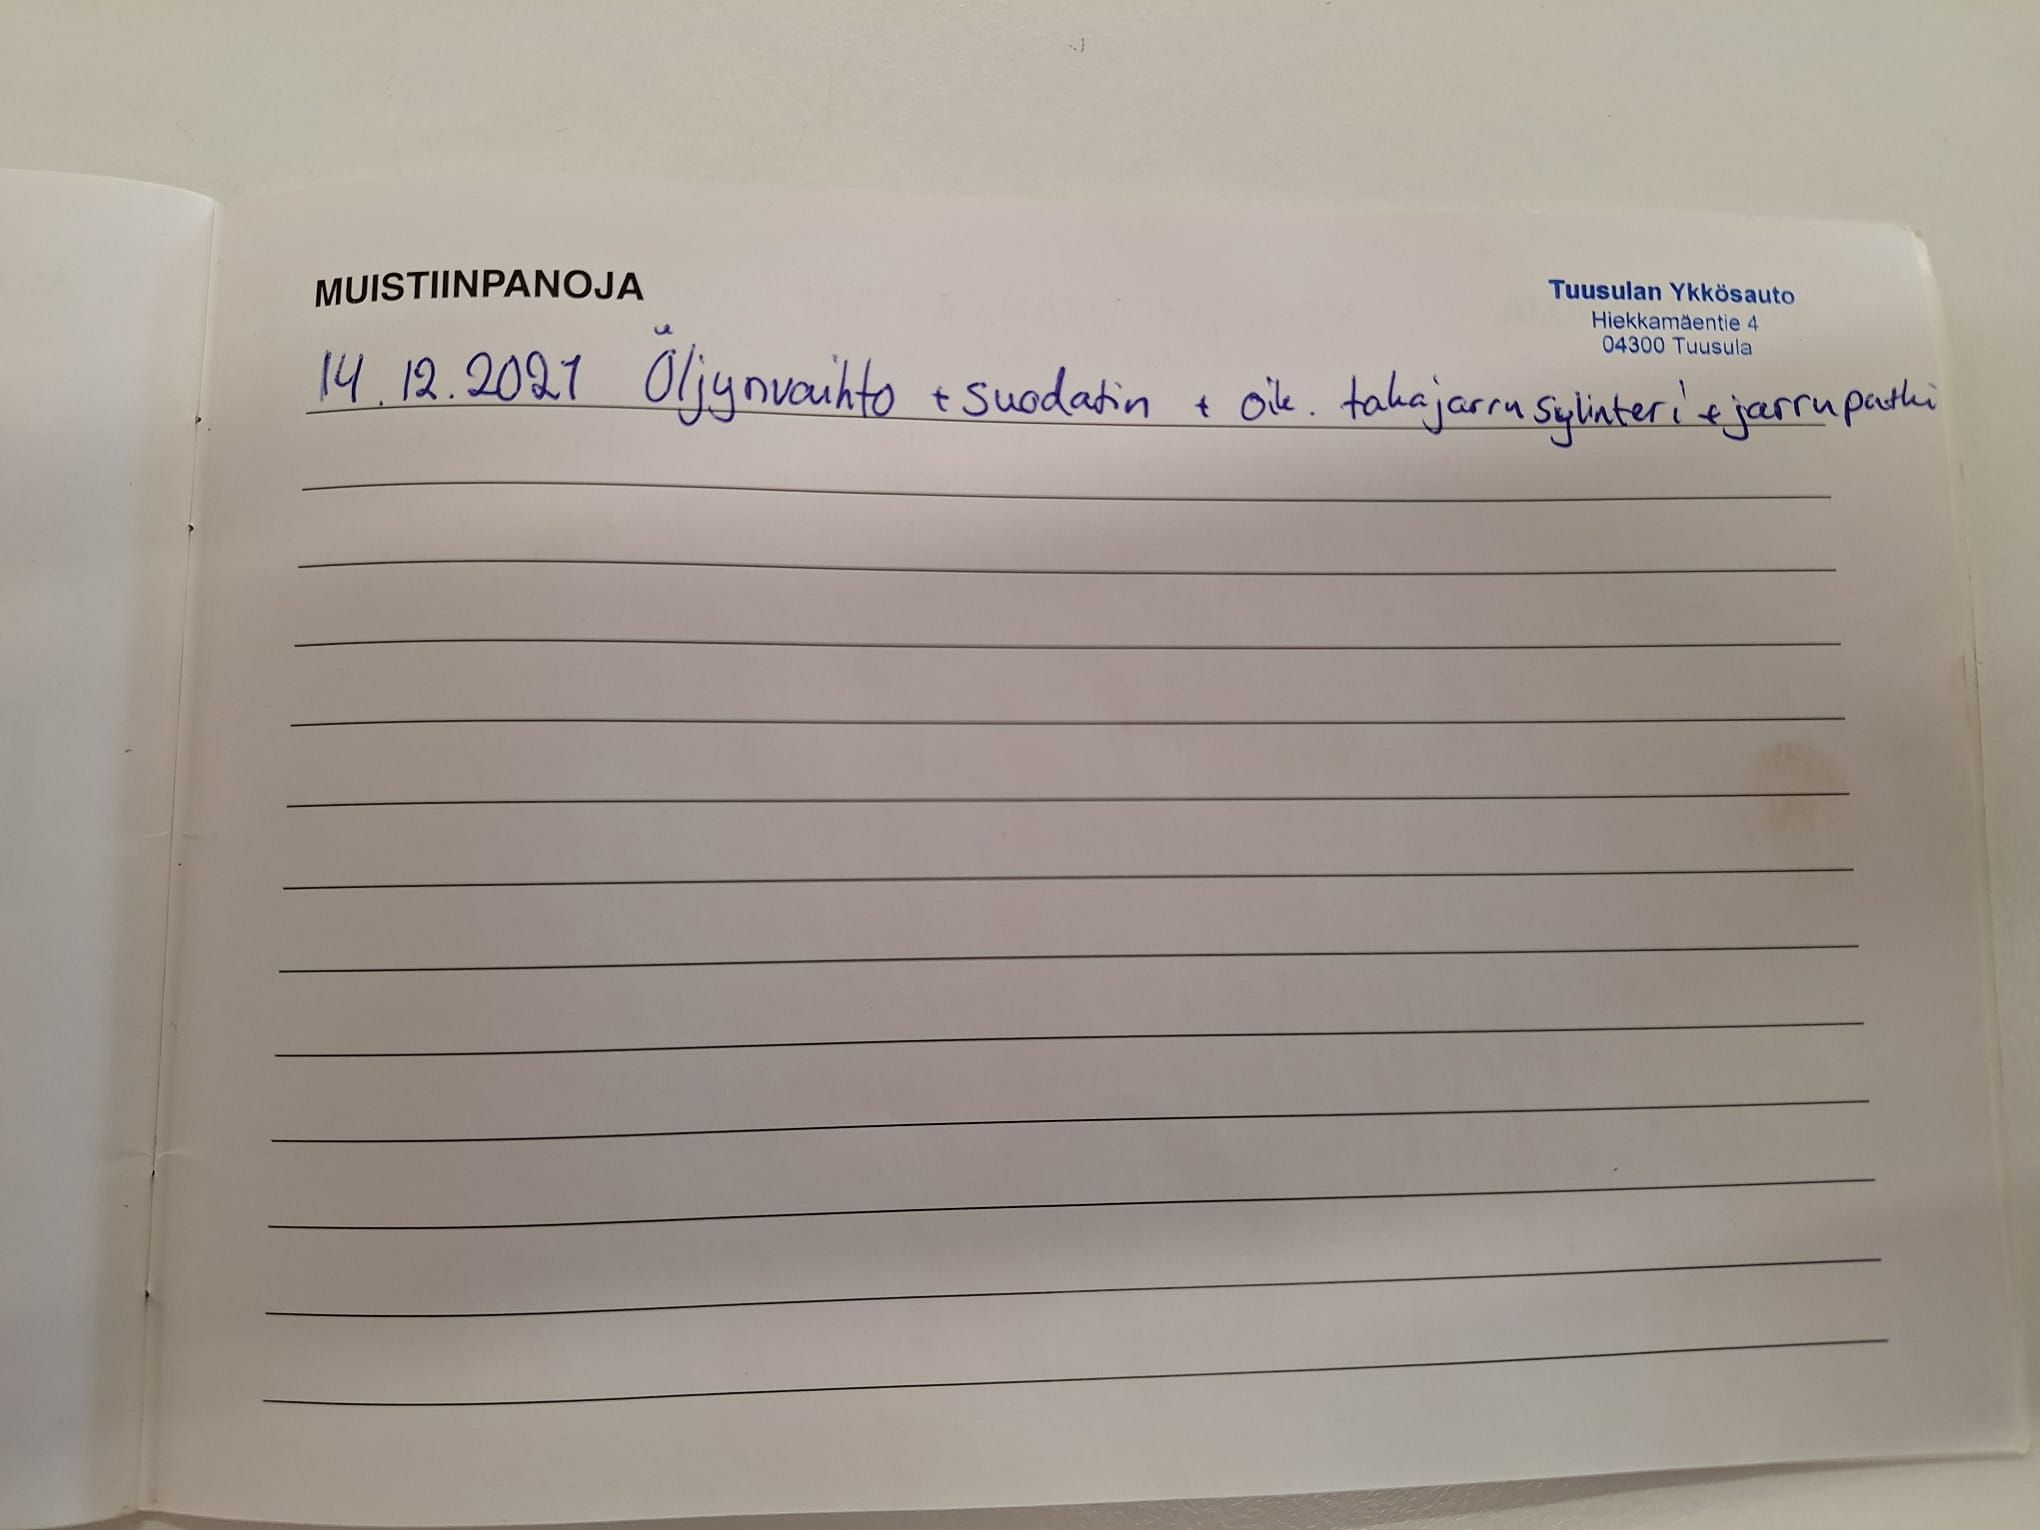 MUISTIINPANOJA
Tuusulan Ykkösauto
Hiekkamäentie 4
04300 Tuusula
14.12.2021 Öljynvaihto + suodatin + oik. takajarrusylinteri + jarruputki